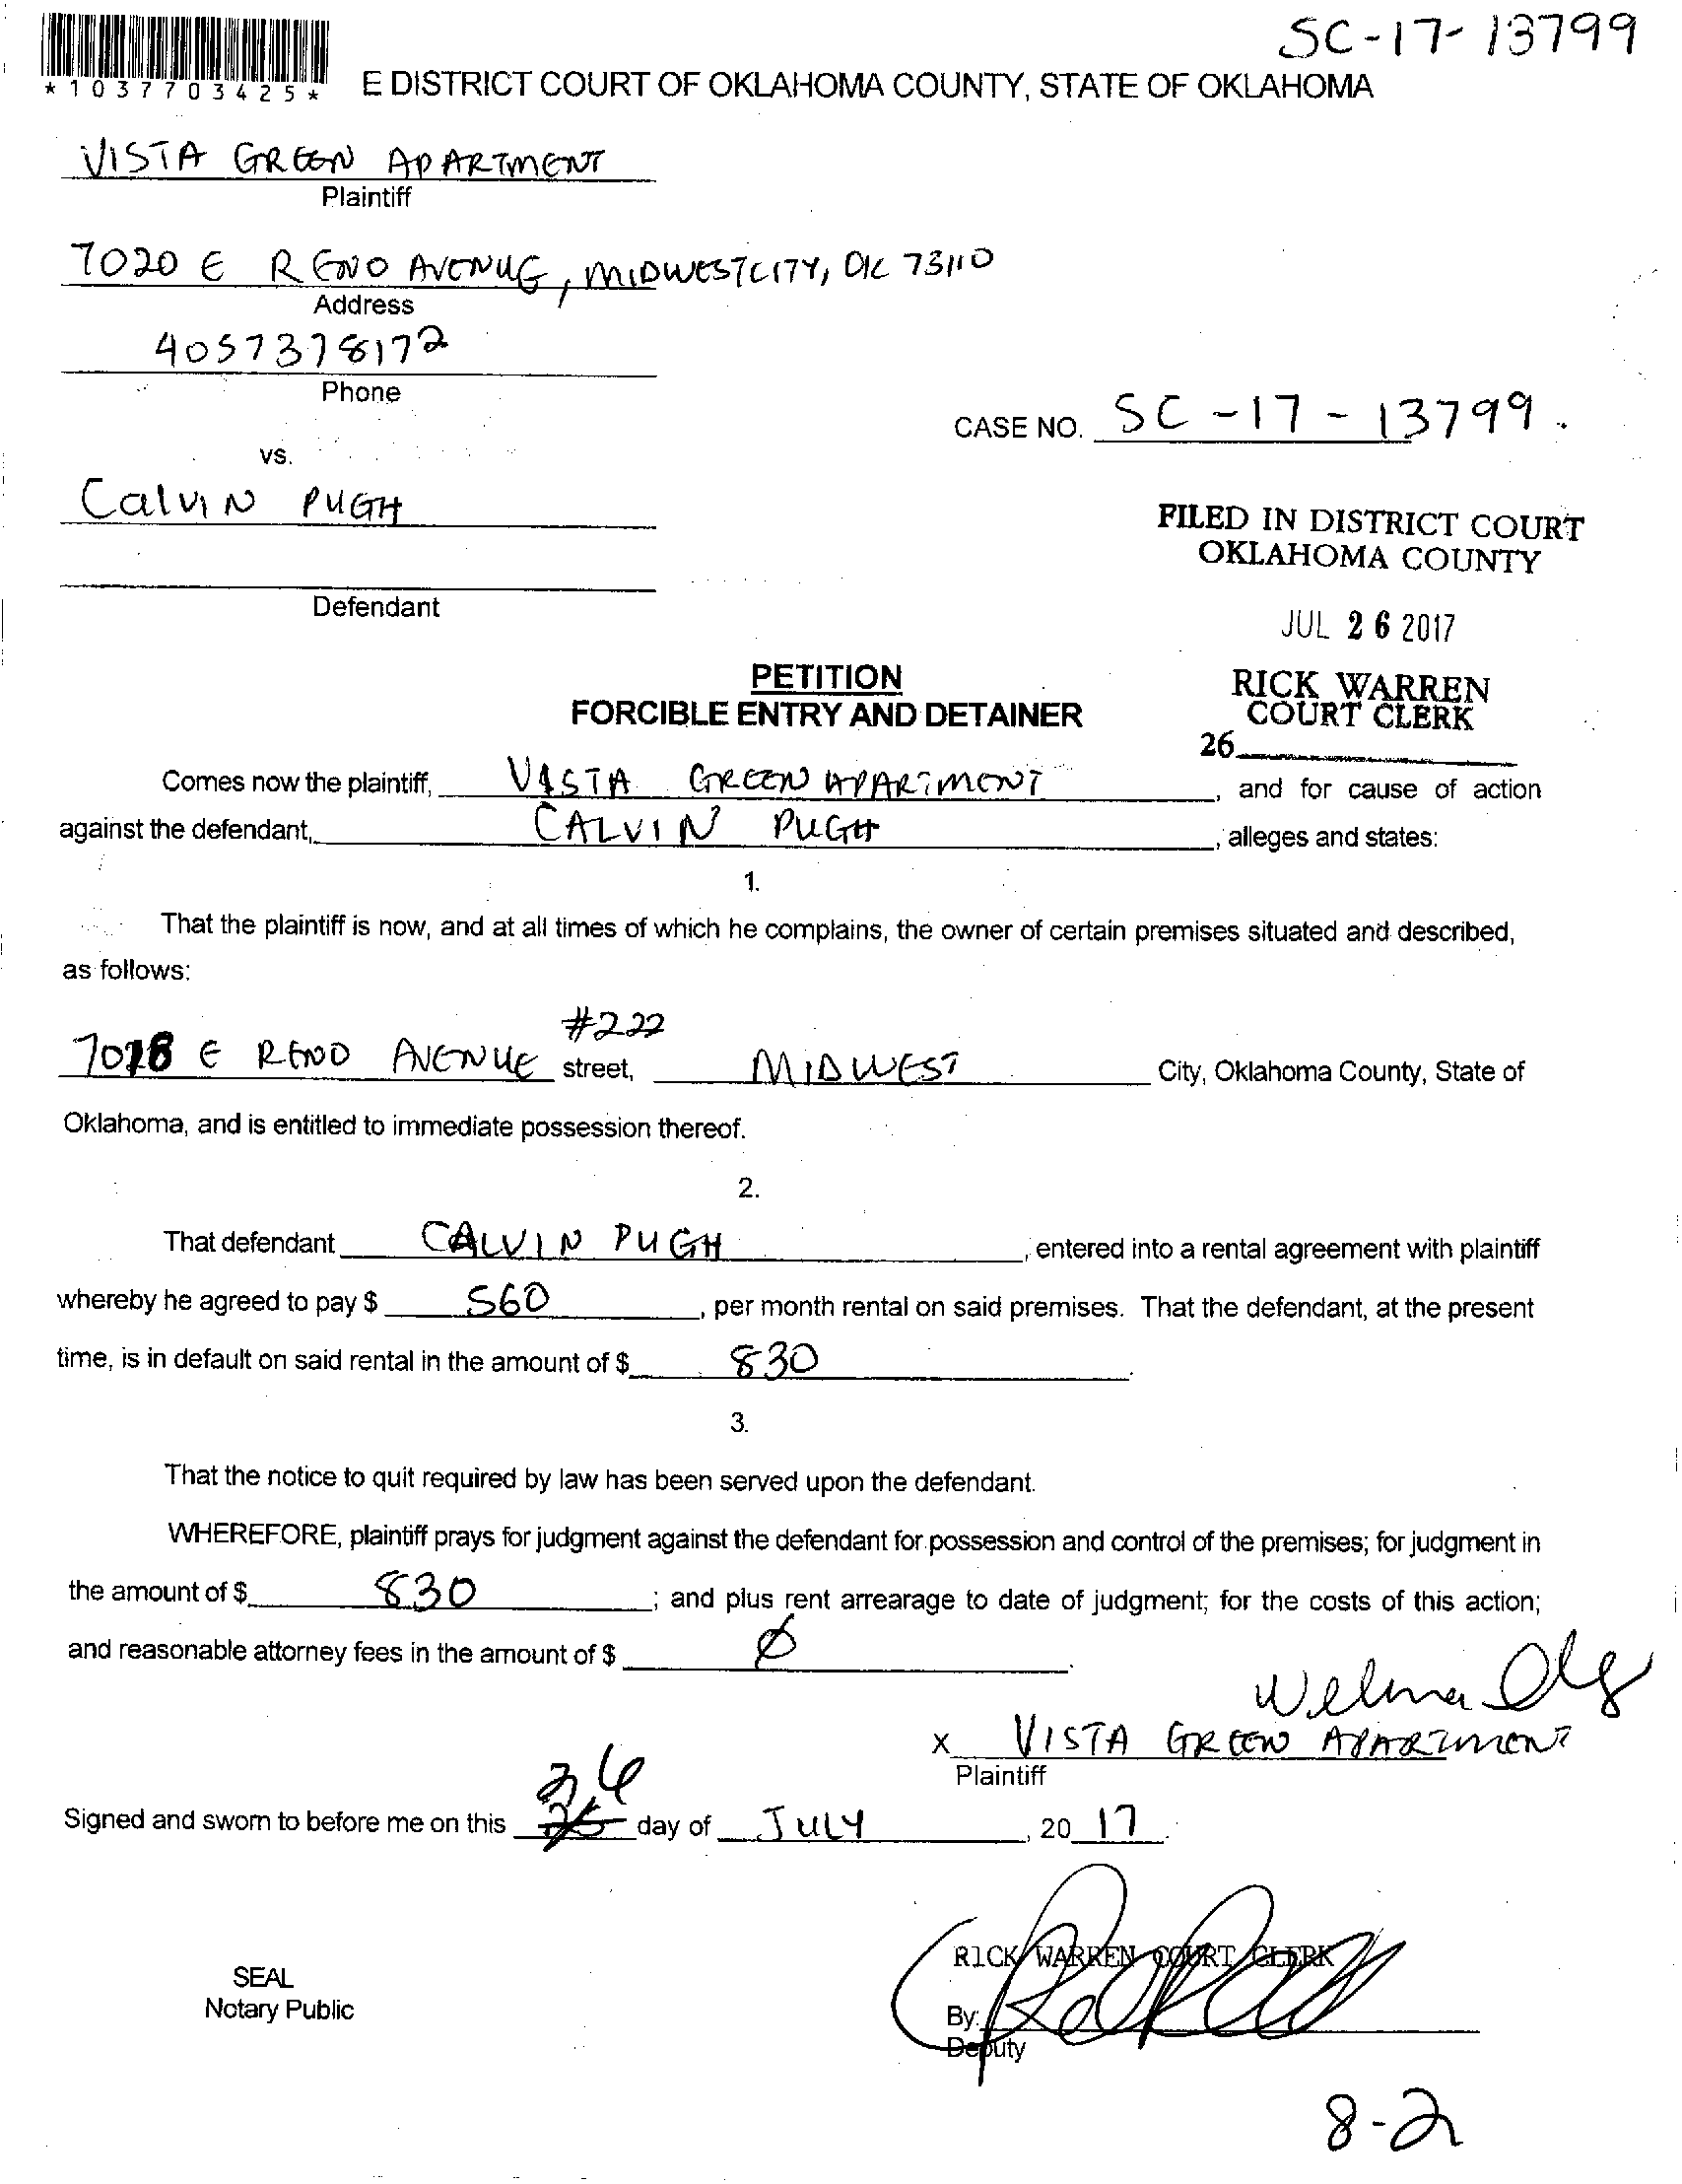 SC-17-13799
*1037703425*
E DISTRICT COURT OF OKLAHOMA COUNTY, STATE OF OKLAHOMA
VISTA GREEN APARTMENT
Plaintiff
7020 E RENO AVENUE, MIDWESTCITY, OK 73110
Address
4057378172
Phone
CASE NO. SC-17-13799.
vs.
Calvin PUGH
Defendant
FILED IN DISTRICT COURT
OKLAHOMA COUNTY
JUL 26 2017
RICK WARREN
COURT CLERK
26
PETITION
FORCIBLE ENTRY AND DETAINER
Comes now the plaintiff, VISTA GREEN APARTMENT, and for cause of action
against the defendant, CALVIN PUGH, alleges and states:
1.
That the plaintiff is now, and at all times of which he complains, the owner of certain premises situated and described,
as follows:
#222
7018 E RENO AVENUE street, MIDWEST City, Oklahoma County, State of
Oklahoma, and is entitled to immediate possession thereof.
2.
That defendant CALVIN PUGH, entered into a rental agreement with plaintiff
whereby he agreed to pay $ 560, per month rental on said premises. That the defendant, at the present
time, is in default on said rental in the amount of $ 830.
3.
That the notice to quit required by law has been served upon the defendant.
WHEREFORE, plaintiff prays for judgment against the defendant for possession and control of the premises; for judgment in
the amount of $ 830; and plus rent arrearage to date of judgment; for the costs of this action;
and reasonable attorney fees in the amount of $ Ø.
Welma
x VISTA GREEN APARTMENT
Plaintiff
26
Signed and sworn to before me on this 25 day of JULY, 20 17.
SEAL
Notary Public
RICK WARREN COURT CLERK
By:
Deputy
8-2